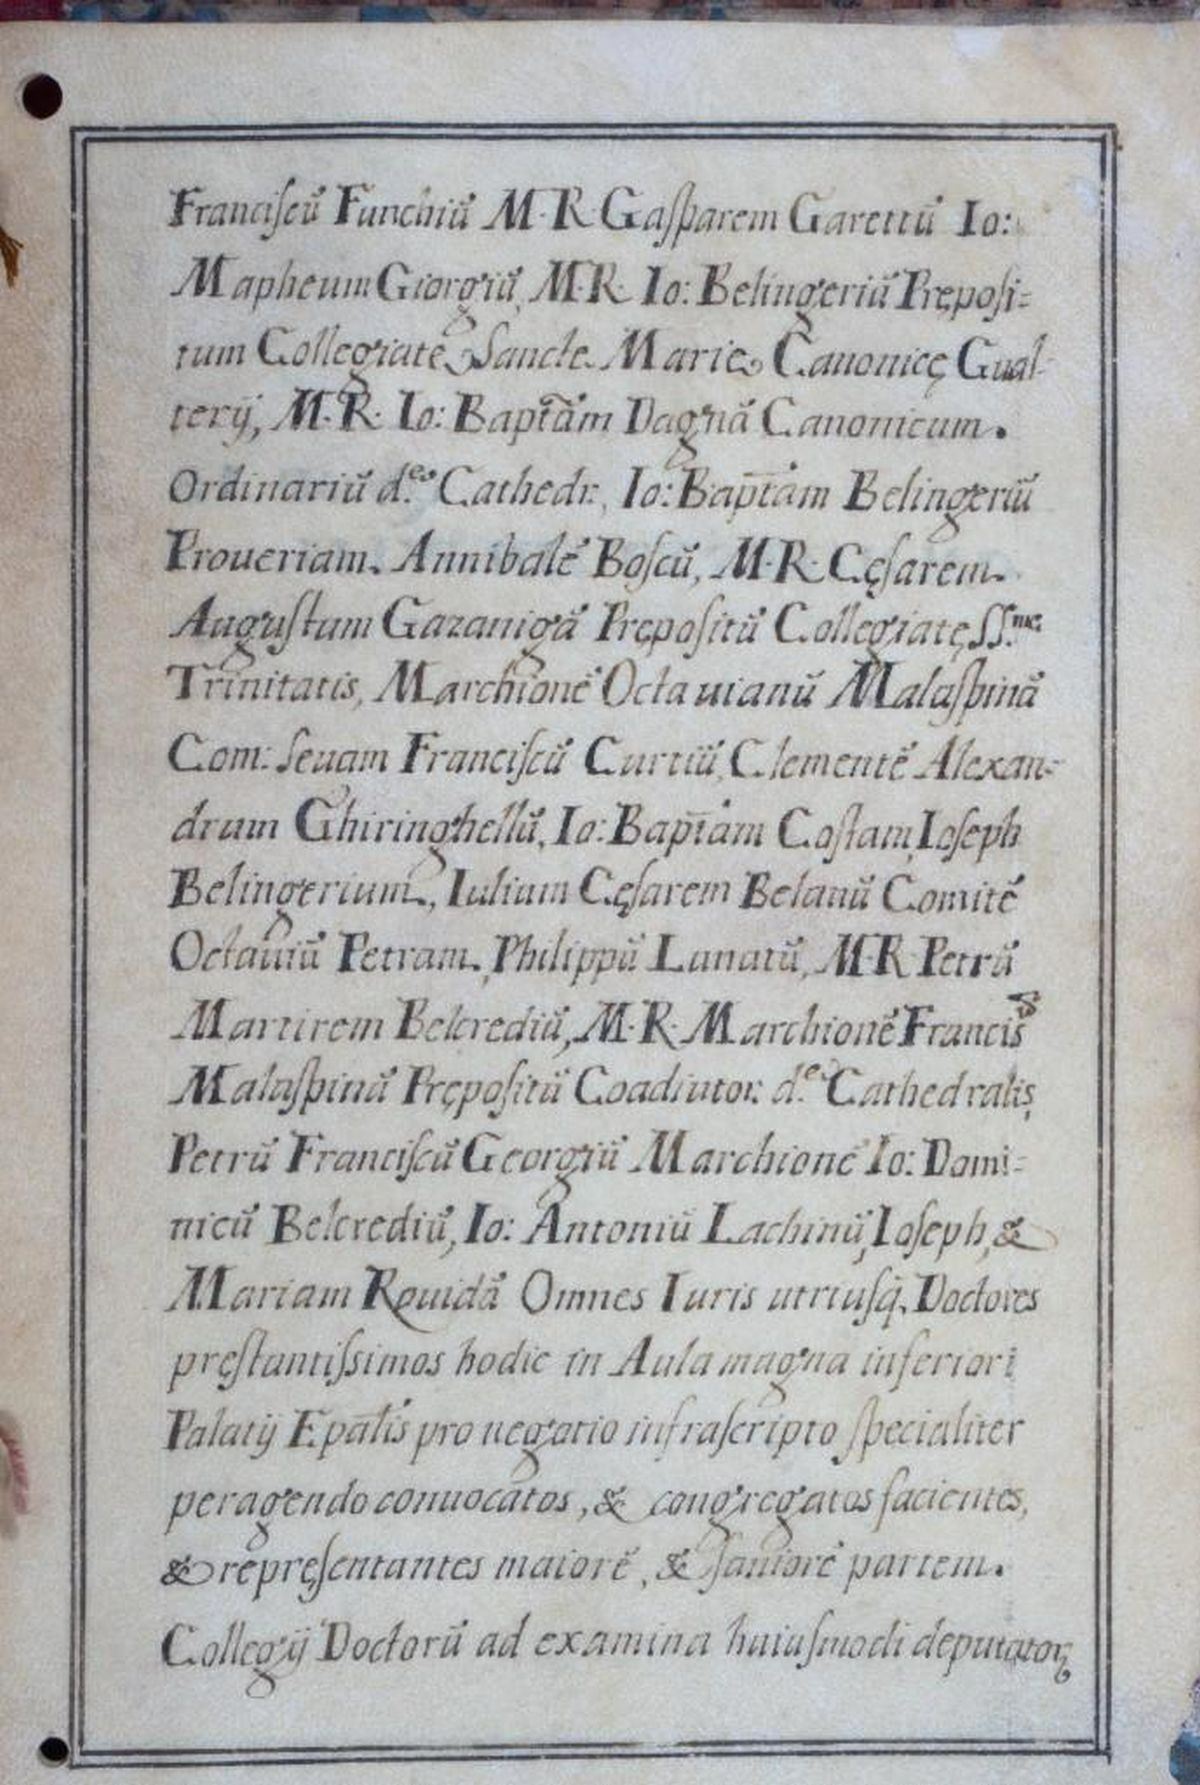 Franciſcū Funchiū M·R·Gaſparem Garettū Io:
Mapheum Giorgiū, M·R· Io: Belingeriū Prępoſi=
tum Collegiatę Sancte Marię Canonicę Gual-
terij, M·R· Io: Bapt̄am Dagnā Canonicum.
Ordinariū d.ę Cathedr:, Io: Bapt̄am Belingeriū
Proueriam. Annibalē Boſcū, M·R· Cęſarem.
Auguſtum Gazanigā Prępoſitū Collegiatę SS.mę
Trinitatis, Marchionē Octauianū Malaſpinā
Com: Seuam Franciſcū Curtiū, Clementē Alexan=
drum Ghiringhellū, Io: Bapt̄am Coſtam, Ioſeph
Belingerium., Iulium Cęſarem Belanū Comitē
Octauiū Petram., Philippū Lunatū, M·R·Petrū
Martirem Belcrediū, M·R· Marchionē Francis
Malaſpinā Prępoſitū Coadiutor: d.ę Cathedralis,
Petrū Franciſcū Georgiū Marchionē Io: Domi=
nicū Belcrediū, Io: Antoniū Lachinū, Ioſeph, &
Mariam Rouidā Omnes Iuris utriuſq́. Doctores
pręſtantiſsimos hodie in Aula magna inferiori
Palatij Epālis pro negotio infraſcripto ſpecialiter
peragendo conuocatos, & congregatos facientes,
& repręſentantes maiorē, & ſaniorē partem.
Collegij Doctorū ad examina huiuſmodi deputatoꝝ